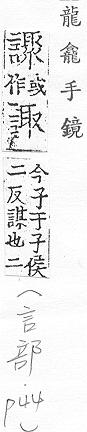 龍龕手鏡
或作諏今子于子侯
二反謀也二
(言部. p44)